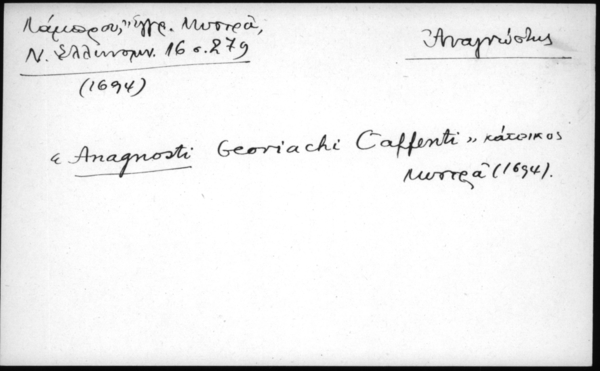 Λάμπρου, "Έγγρ. Μυστρᾶ,
Ν. Ἑλληνομν. 16 σ. 279
(1694)
Ἀναγνώστης
« Anagnosti Georiachi Caffenti » κάτοικος
Μυστρᾶ (1694).